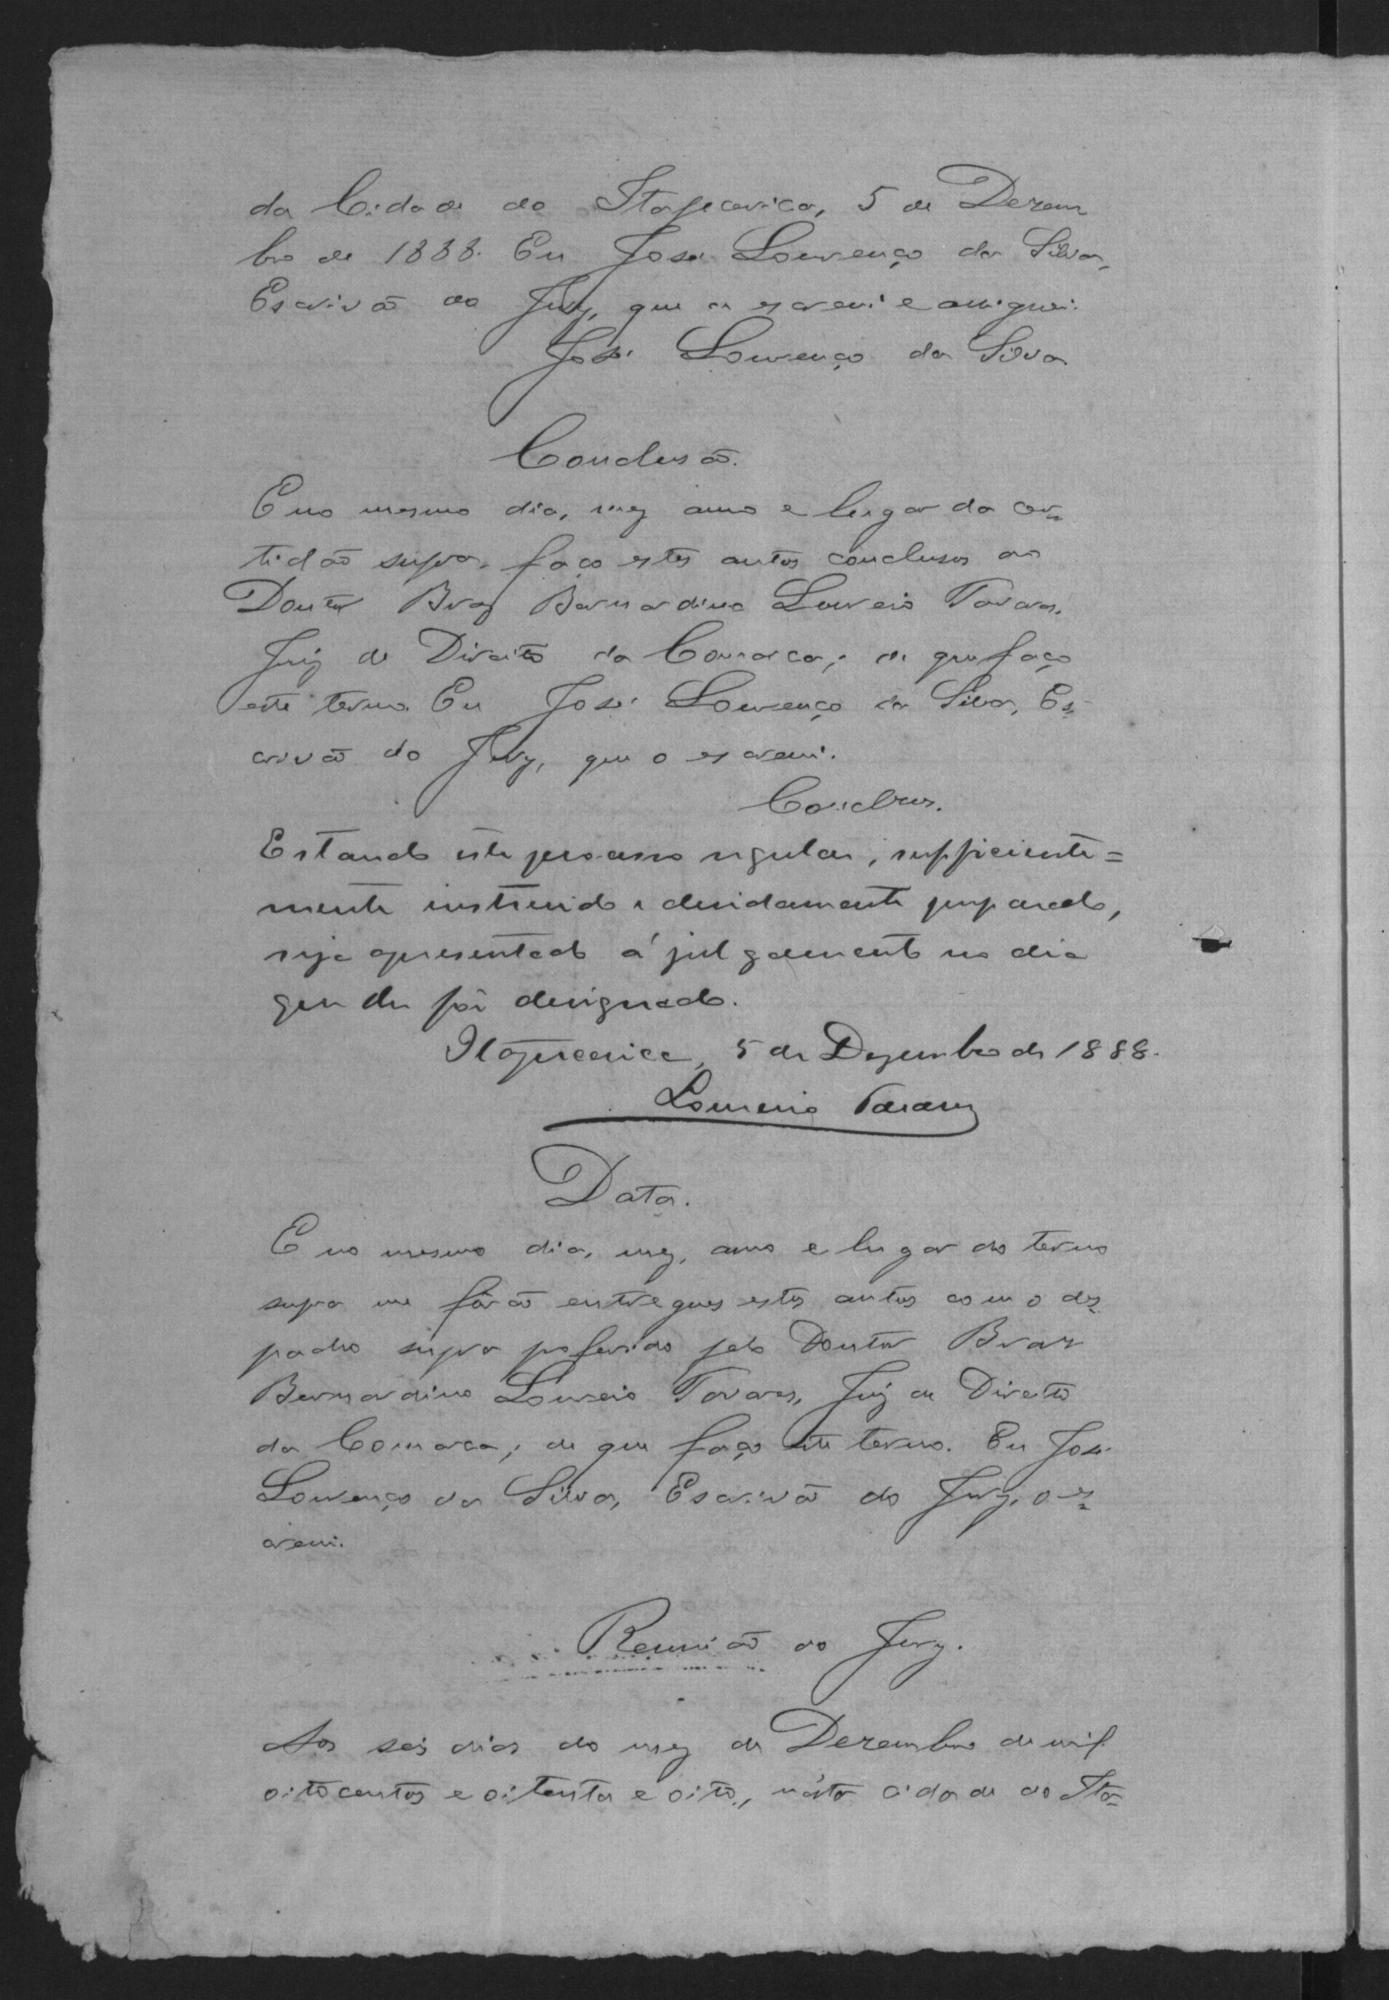 da Cidade do Itapecerica, 5 de Dezem
bro de 1888. Eu José Lourenço da Silva,
Escrivão do Jury, que o escrevi e assignei.
José Lourenço da Silva
Conclusão.
E no mesmo dia, mez anno e lugar da cer=
tidão supra, faço estes autos conclusos ao
Doutor Braz Bernardino Loureiro Tavares,
Juiz de Direito da Comarca; de que faço
este termo. Eu José Lourenço da Silva, Es=
crivão do Jury, que o escrevi.
Estando este processo regular, sufficiente=
mente instruido e devidamente preparado,
seja apresentado á julgamento no dia
que lhe fôr designado.
Itapecerica, 5 de Dezembro de 1888.
Loureiro Tavares
Data.
E no mesmo dia, mez, anno e lugar do termo
supra me fôrão entregues estes autos com o des=
pacho supra proferido pelo Doutor Braz
Bernardino Loureiro Tavares, Juiz de Direito
da Comarca; de que faço este termo. Eu José
Lourenço da Silva, Escrivão do Jury, o es=
crevi.
Reunião do Jury.
Aos seis dias do mez de Dezembro de mil
oitocentos e oitenta e oito, nésta cidade do Ita=